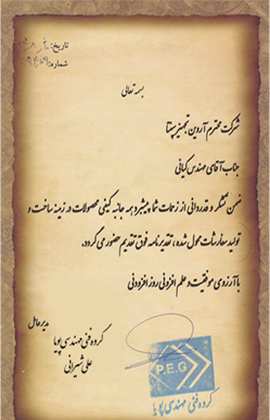 تاریخ:
شماره:
بسمه تعالی
شرکت محترم آروین تجهیز سپنتا
جناب آقای مهندس کیانی
ضمن تشکر و قدردانی از زحمات شما پیشبرد همه جانبه کیفی محصولات در زمینه ساخت و
تولید سفارشات محول شده، تقدیرنامه فوق تقدیم حضوری گردد.
با آرزوی موفقیت و علم افزونی روز افزون
مدیرعامل
گروه فنی مهندسی پویا
علی شیرانی
P.E.G
گروه فنی مهندسی پویا